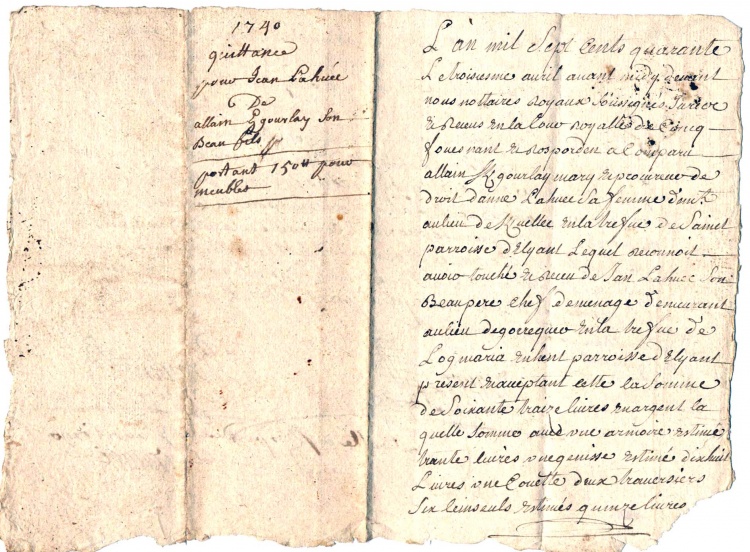 1740
quittance
pour Jean Lahuec
De
allain Kgourlay Son
Beau fils
portant 150tt pour
meubles
L'an mil Sept Cents quarante
Le troisiesme avril avant midy devant
nous nottaires Royaux Soussignés
& Receus en la Cour Royalle de Concq
fouesnant & Rosporden a Comparu
allain Kgourlay mary & procureur de
droit d'anne Lahuec Sa femme
au lieu de en la trefve de Sainct
parroisse d'Elyant Lequel Reconnoit
avoir touché & Receu de Jan Lahuec Son
Beau pere chef de menage demeurant
au lieu de en la trefve de
Logmaria parroisse d'Elyant
present & acceptant cette la Somme
de Soixante traize livres en argent la
quelle Somme avec une armoire estimé
trante livres une genisse estimé dix huit
Livres une Couette deux traversiers
Six Leinseuls estimés quinze livres